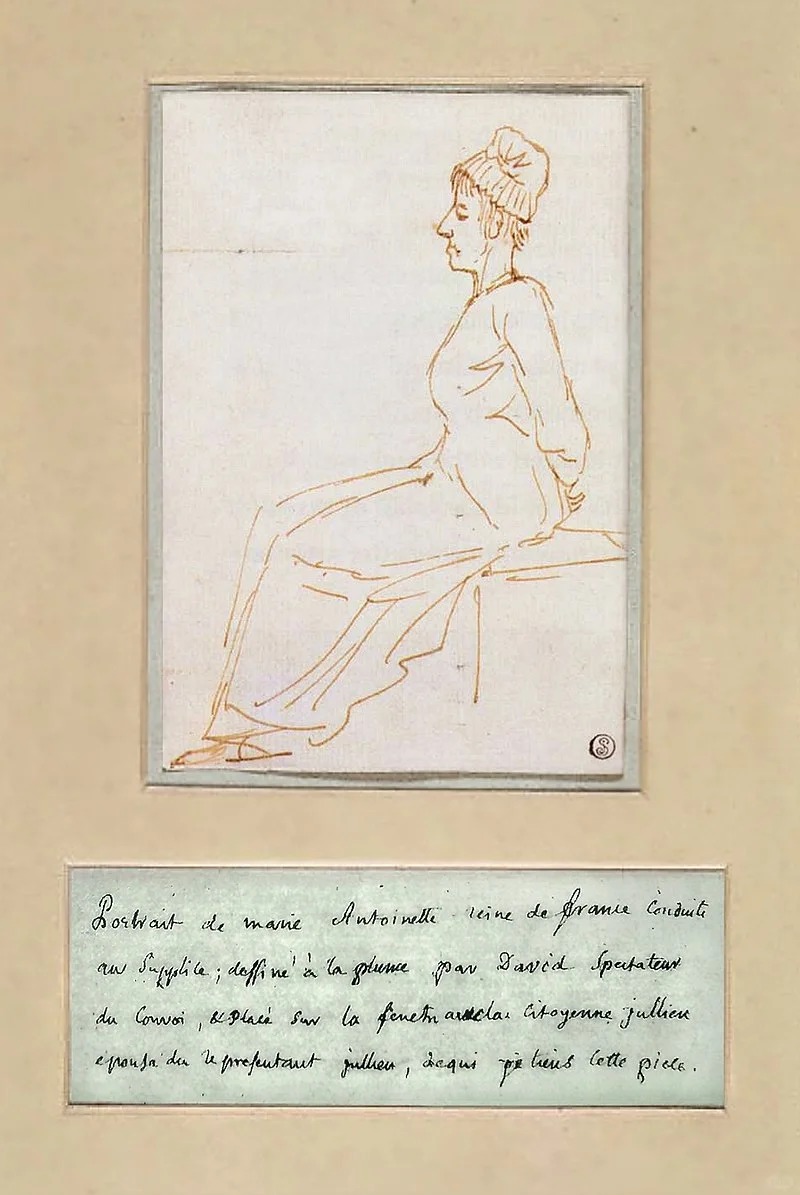 Portrait de marie Antoinette reine de france conduite
au Supplice ; dessiné à la plume par David Spectateur
du Convoi, & Placé sur la fenetre la Citoyenne jullien
epouse du représentant jullien, de qui je tiens cette piece.
S